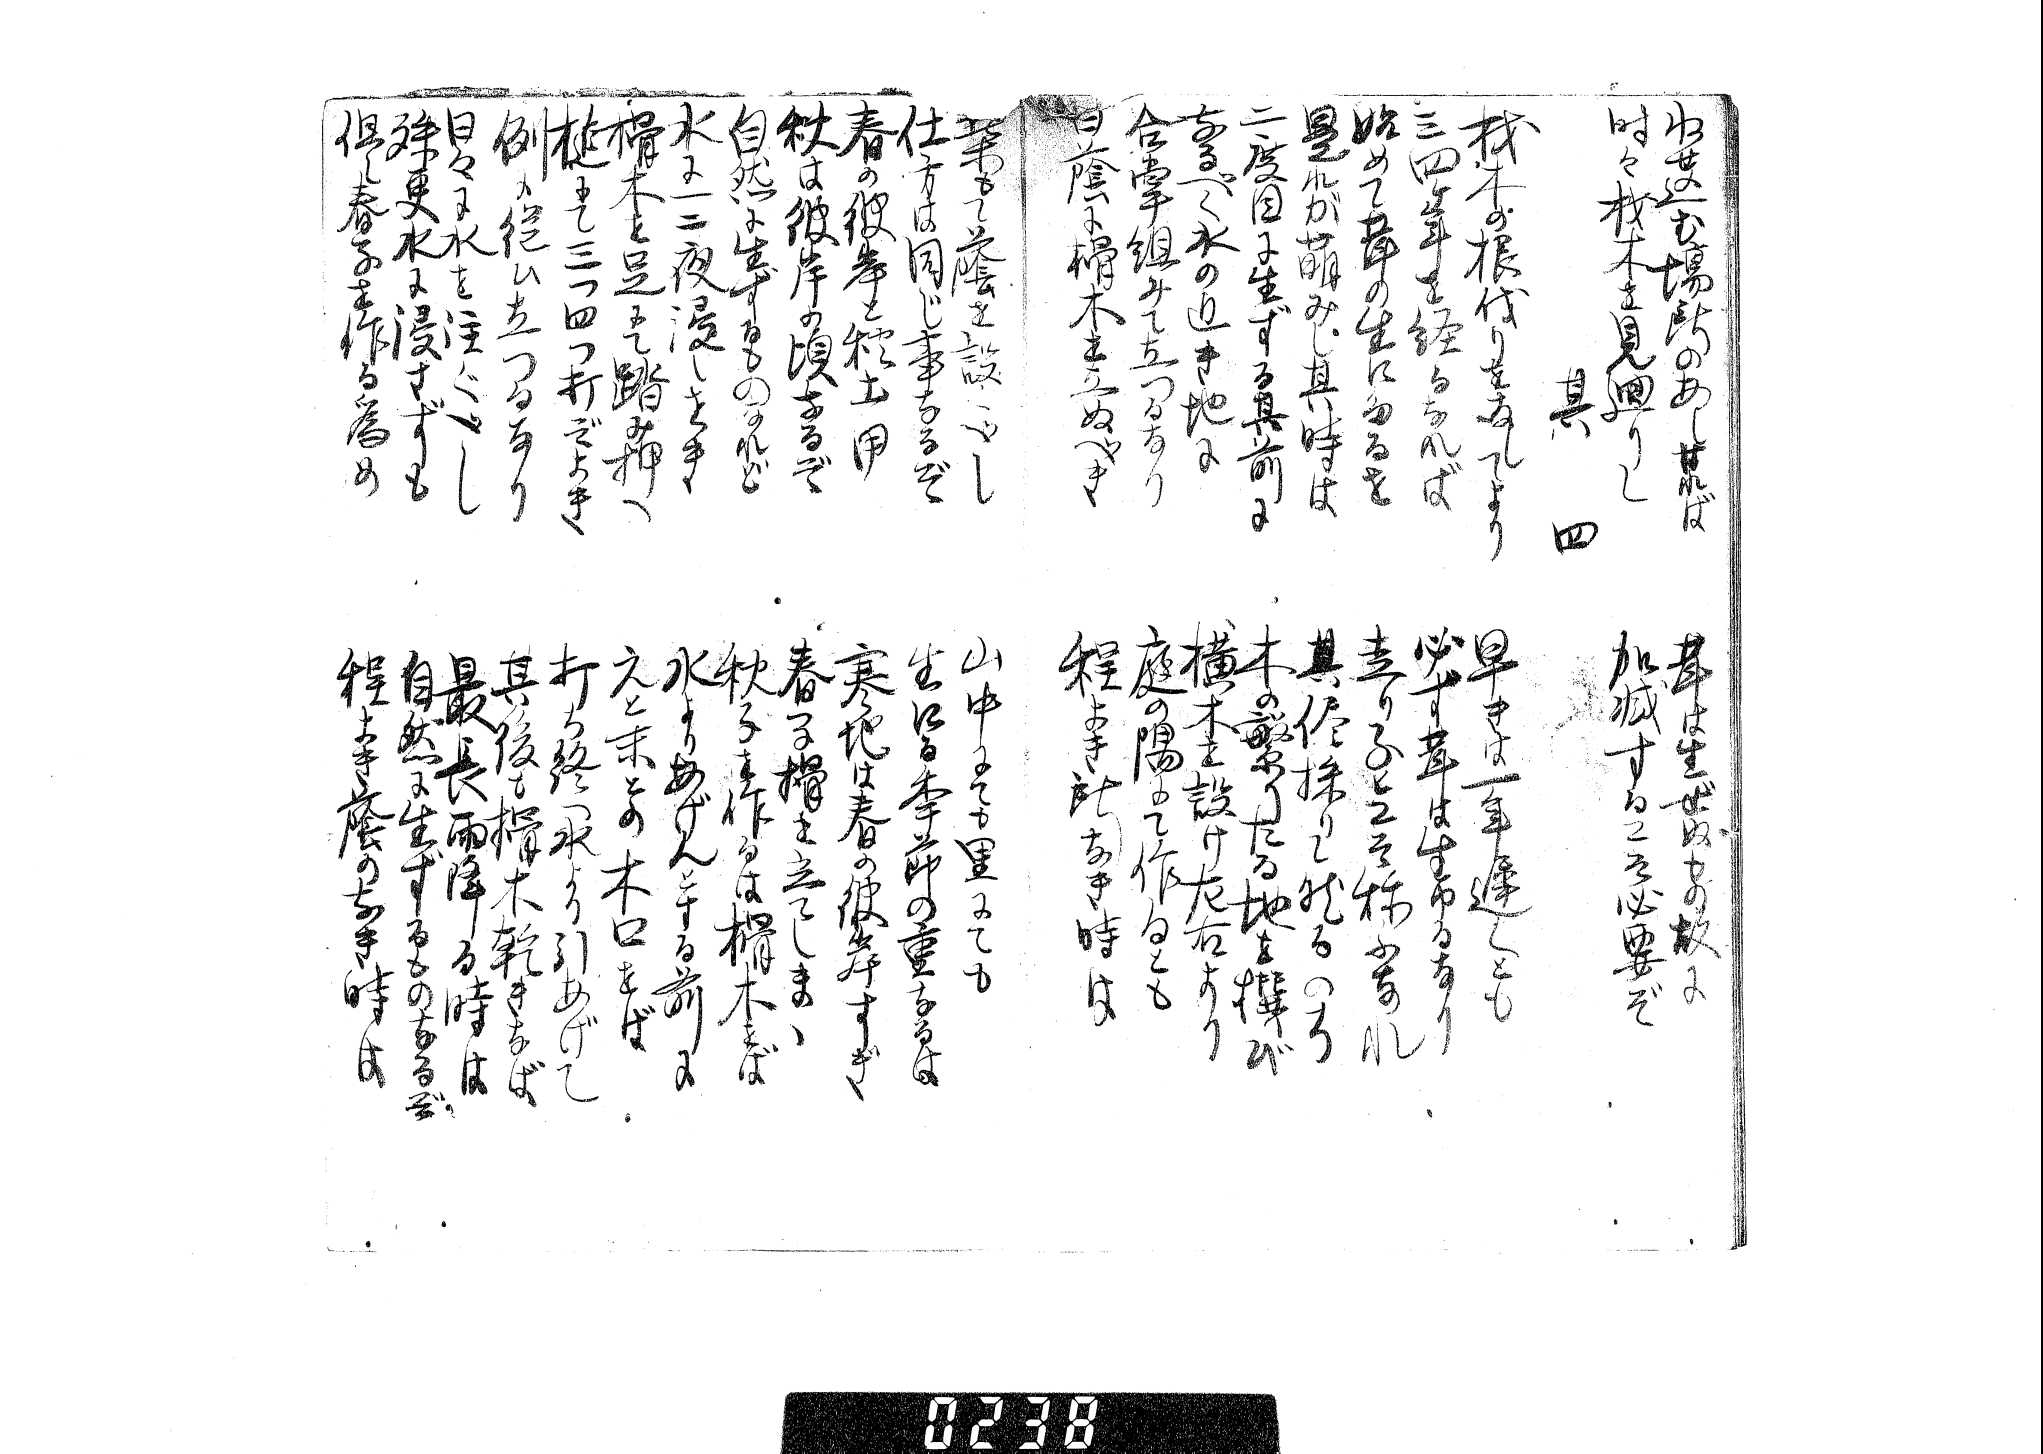 場所のあし其れば
茸は生ぜぬもの故に
時々枝木を見廻りて
加減するこそ必要ぞ
其 四
枝木の根伐りを致してより
早きは一年遅くとも
三四年を経るなれば
必ず茸は生るなり
始めて茸の生にるを
走り子とこそ称ふなれ
是れが萌みし其時は
其侭採りて然るのち
二度目に生ずる其前に
木の繁りたる地を撰び
なるべく水の近き地に
横木を設け左右より
合掌組みて立つるなり
庭の隅にて作るとも
日蔭に榾木を立ぬべき
程よき所なき時は
もて蔭を設べし
山中にても里にても
仕方は同じ事なるぞ
生に出る季節の重なるは
春の彼岸と秋土用
寒地は春の彼岸すぎ
秋は彼岸の頃なるぞ
春子榾を立てしまゝ
自然に生ずるものなれど
秋子を作るは榾木をば
水に一二夜浸しをき
水よりあげんとする前に
榾木を足にて踏み押へ
元と末との木口をば
槌にて三つ四つ打ぞよき
打ち終つ水より引あげて
例に従ひ立つるなり
其後も榾木乾きなば
日々に水を注ぐべし
最長雨降る時は
殊更水に浸すずも
自然に生ずるものなるぞ
但し春子を作る為め
程よき蔭のなき時は
0238